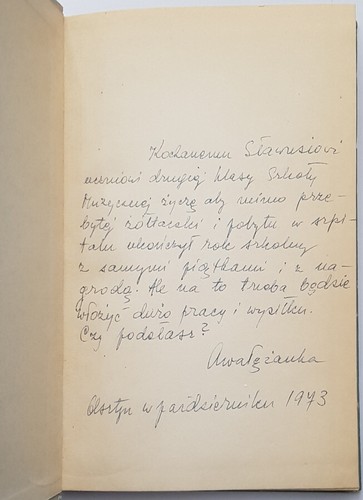 Kochanemu Sławusiowi
uczniowi drugiej klasy Szkoły
Muzycznej życzę aby mimo prze-
bytej żółtaczki i pobytu w szpi-
talu ukończył rok szkolny
z samymi piątkami i z na-
grodą. Ale na to trzeba będzie
włożyć dużo pracy i wysiłku.
Czy podołasz?
Olsztyn w październiku 1973